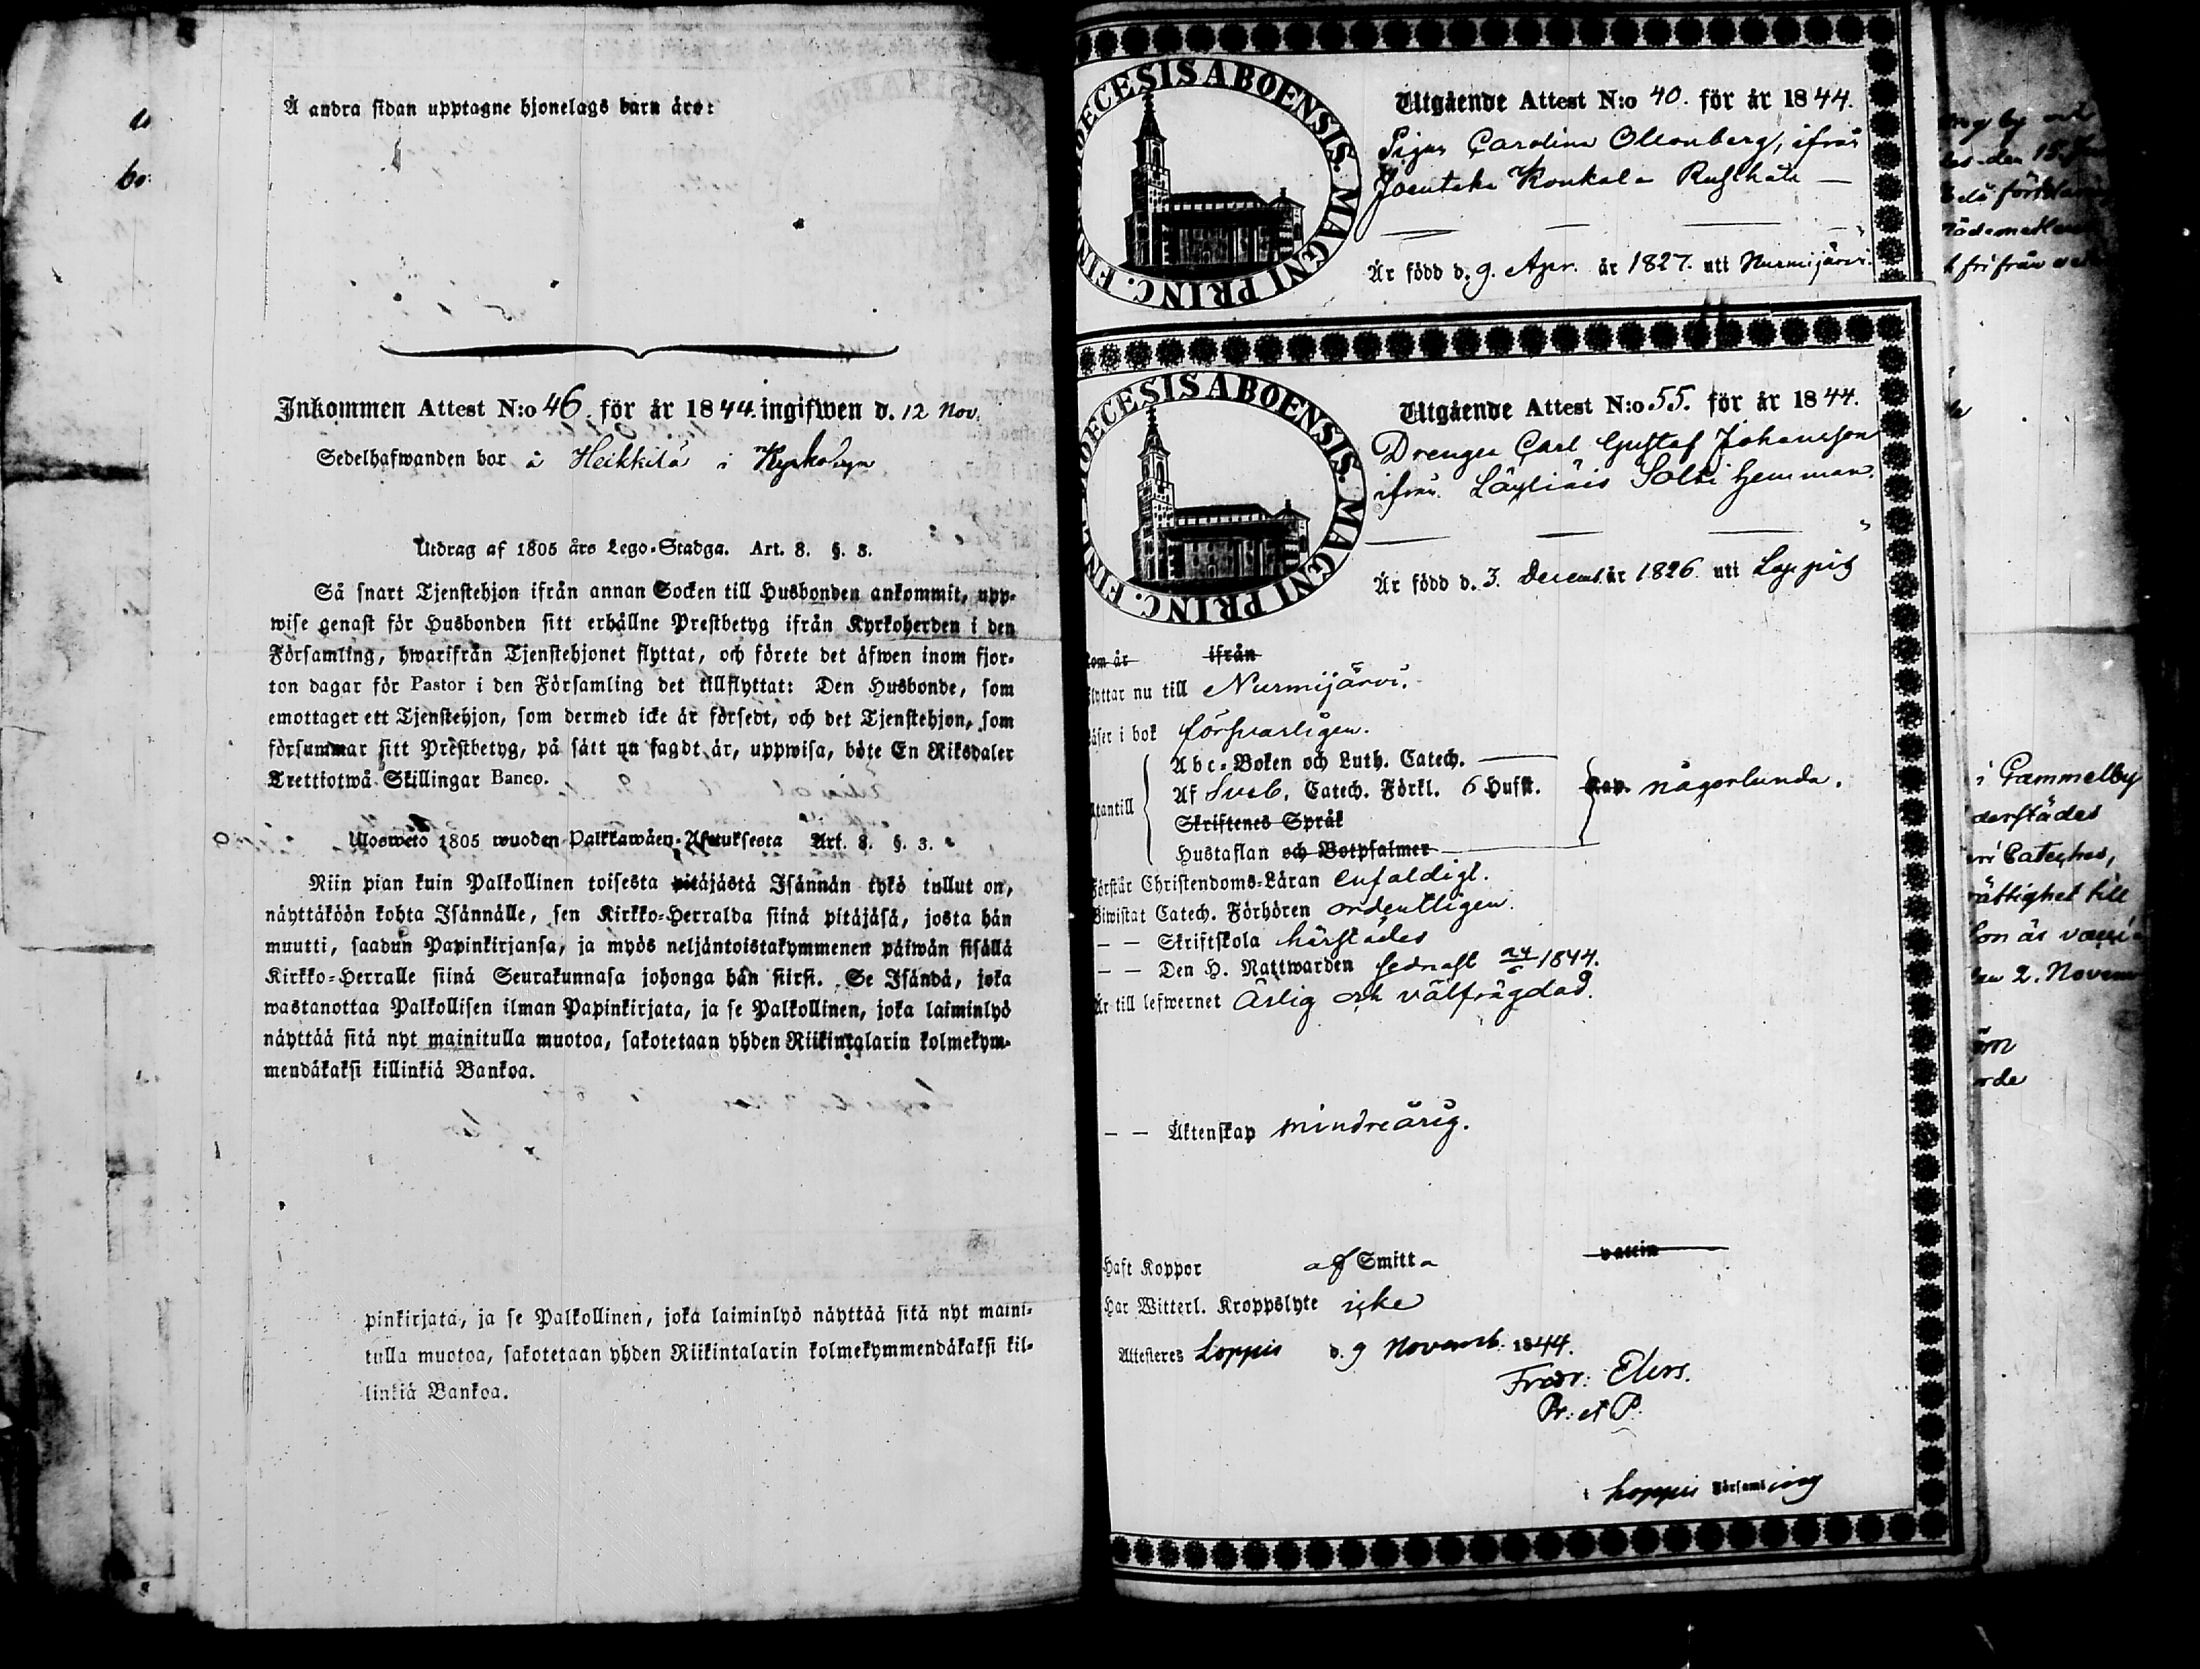 Å andra sidan upptagne hjonelags barn äro:
Inkommen Attest N:o 46. för år 1844. ingifwen d. 12 Nov.
Sedelhafwanden bor å Heikkilä i Kyrkobyn
Utdrag af 1805 års Lego-Stadga. Art. 8. §. 3.
Så snart Tjenstehjon ifrån annan Socken till Husbonden ankommit, upp-
wise genast för Husbonden sitt erhållne Prestbetyg ifrån Kyrkoherden i den
Församling, hwarifrån Tjenstehjonet flyttat, och förete det äfwen inom fjor-
ton dagar för Pastor i den Församling det tillflyttat: Den Husbonde, som
emottager ett Tjenstehjon, som dermed icke är försedt, och det Tjenstehjon, som
försummar sitt Prestbetyg, på sätt nu sagdt är, uppwisa, böte En Riksdaler
Trettiotwå Skillingar Banco.
Ulosweto 1805 wuoden Palkkawäen-Asetuksesta Art. 8. §. 3.
Niin pian kuin Palkollinen toisesta pitäjästä Isännän tykö tullut on,
näyttäköön kohta Isännälle, sen Kirkko-Herralda siinä pitäjäsä, josta hän
muutti, saadun Papinkirjansa, ja myös neljäntoistakymmenen päiwän sisällä
Kirkko-Herralle siinä Seurakunnasa johonga hän siirsi. Se Isändä, joka
wastanottaa Palkollisen ilman Papinkirjata, ja se Palkollinen, joka laiminlyö
näyttää sitä nyt mainitulla muotoa, sakotetaan yhden Riikintalarin kolmekym-
mendäkaksi killinkiä Bankoa.
pinkirjata, ja se Palkollinen, joka laiminlyö näyttää sitä nyt maini-
tulla muotoa, sakotetaan yhden Riikintalarin kolmekymmendäkaksi kil-
linkiä Bankoa.
DIOECESIS ABOENSIS. MAGNI PRINC. FIN
Utgående Attest N:o 40. för år 1844.
Pigan Carolina Ollonberg, ifrån
Joentaka Konkala Rusthåll
Är född d. 9. Apr. år 1827. uti Nurmijärvi.
DIOECESIS ABOENSIS. MAGNI PRINC. FINL
Utgående Attest N:o 55. för år 1844.
Drengen Carl Gustaf Johansson
ifrån Läyliäis Solki Hemman.
Är född d. 3. Decemb. år 1826. uti Loppis
kom år ifrån
flyttar nu till Nurmijärvi.
läser i bok försvarligen.
Abc-Boken och Luth. Catech.
utantill Af Sveb. Catech. Förkl. 6 Hufst. Cap. någorlunda.
Skriftenes Språk
Hustaflan och Botpsalmer
Förstår Christendoms-Läran enfaldigt.
Biwistat Catech. Förhören ordentligen.
— — Skriftskola härstädes
— — Den H. Nattwarden sednast 24/6 1844.
Är till lefwernet Ärlig och välfrägdad.
— — Äktenskap mindreårig.
Haft Koppor af Smitta vaccin
Har Witterl. Kroppslyte icke
Attesteres Loppis d. 9 Novemb. 1844.
Fredr: Elers.
Pr: et P.
i Loppis Församling
i Gammelby
derstädes
rättighet till